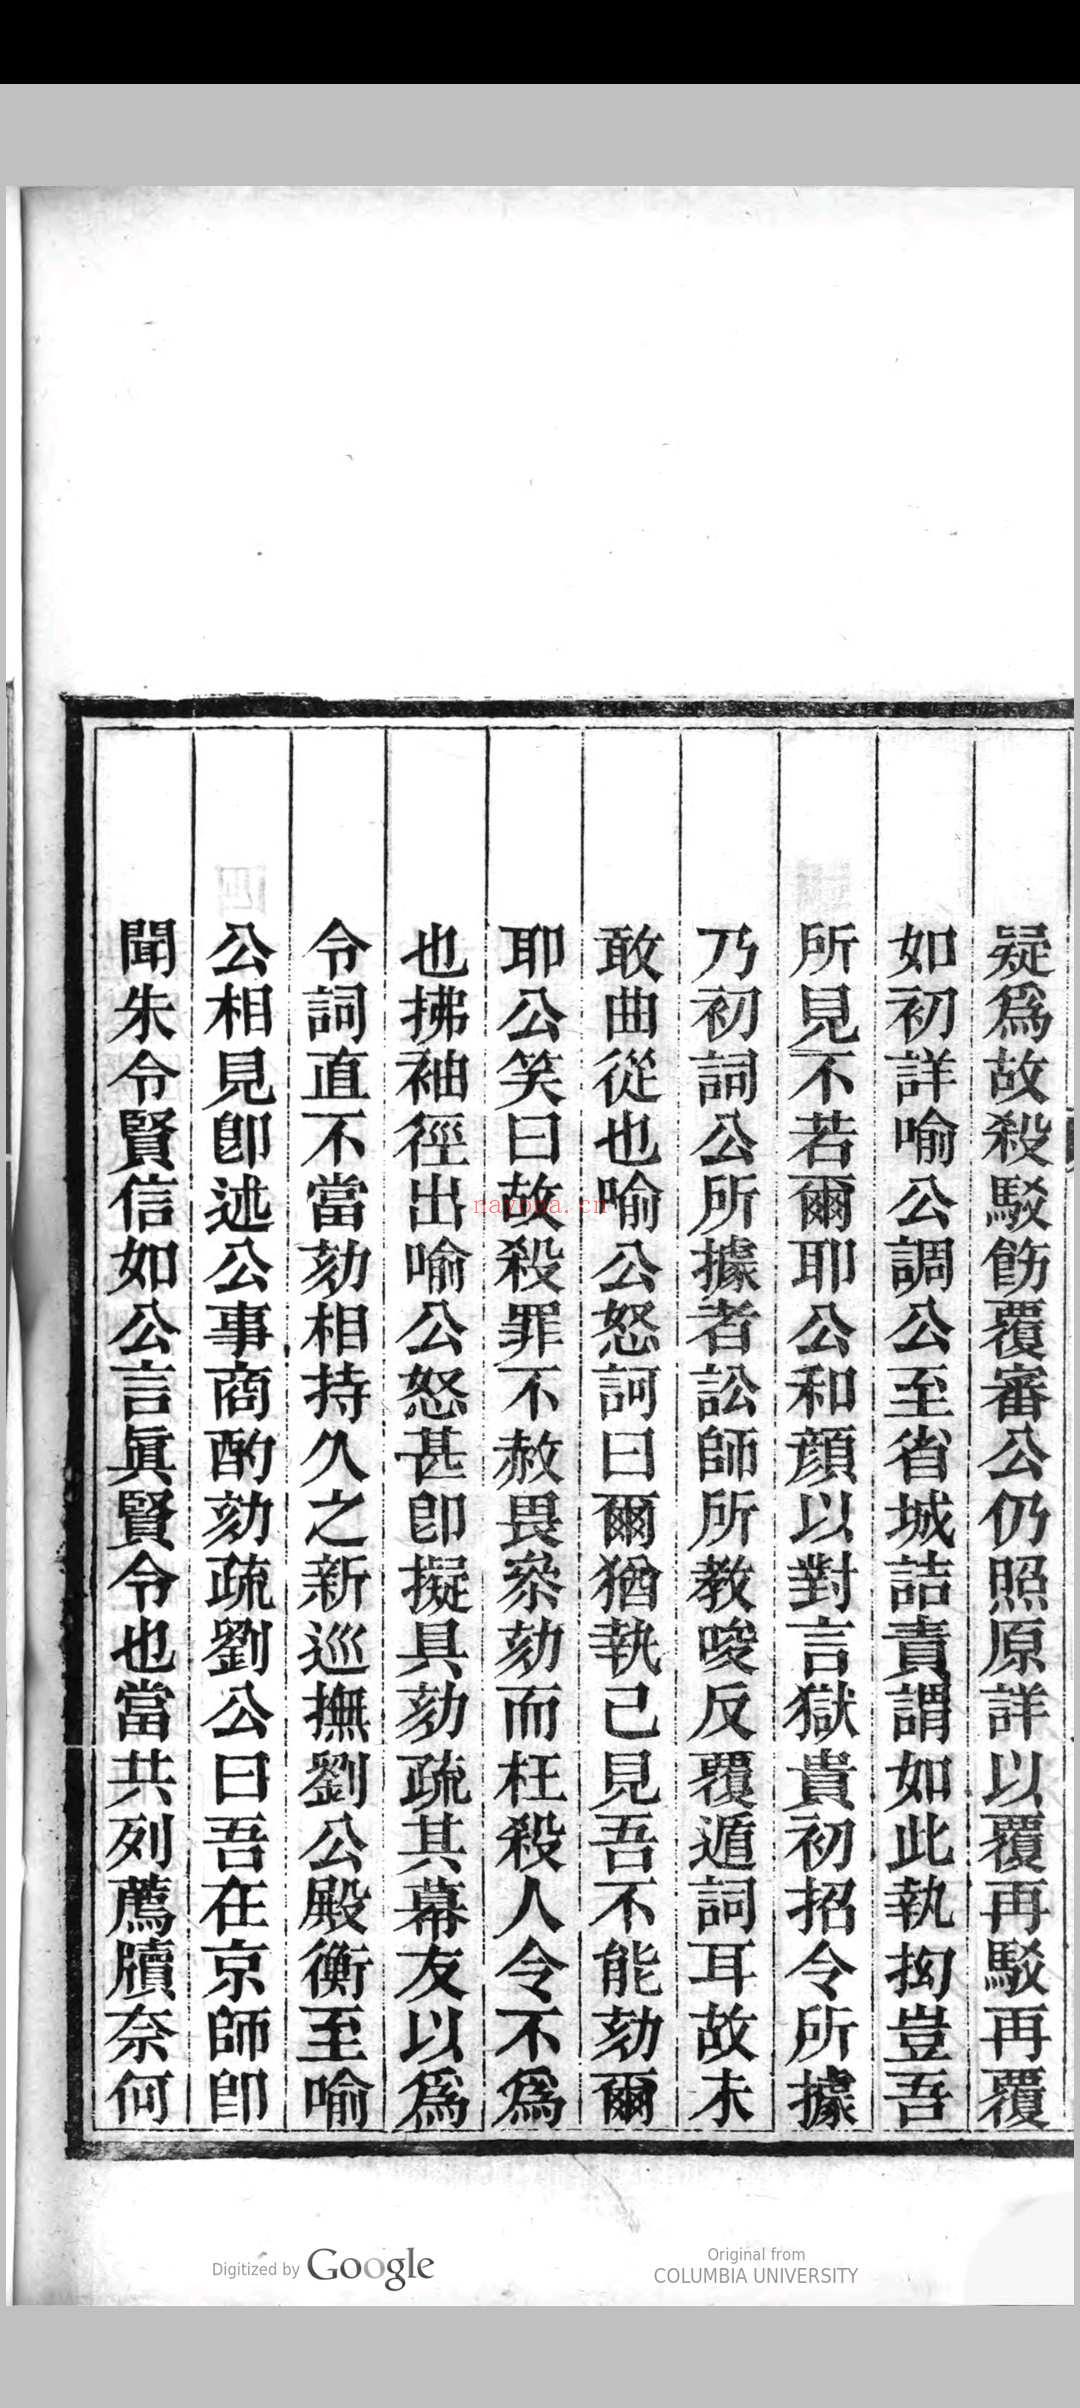 疑爲故殺駁飭覆審公仍照原詳以覆再駁再覆
如初詳喻公調公至省城詰責謂如此執拗豈吾
所見不若爾耶公和顔以對言獄貴初招令所據
乃初詞公所據者訟師所教唆反覆遁詞耳故未
敢曲從也喻公怒訶曰爾猶執己見吾不能劾爾
耶公笑曰故殺罪不赦畏叅劾而枉殺人令不爲
也拂袖徑出喻公怒甚卽擬具劾疏其幕友以爲
令詞直不當劾相持久之新巡撫劉公殿衡至喻
公相見卽述公事商酌劾疏劉公曰吾在京師卽
聞朱令賢信如公言眞賢令也當共列薦牘奈何
nayona.cn
Digitized by Google
Original from
COLUMBIA UNIVERSITY